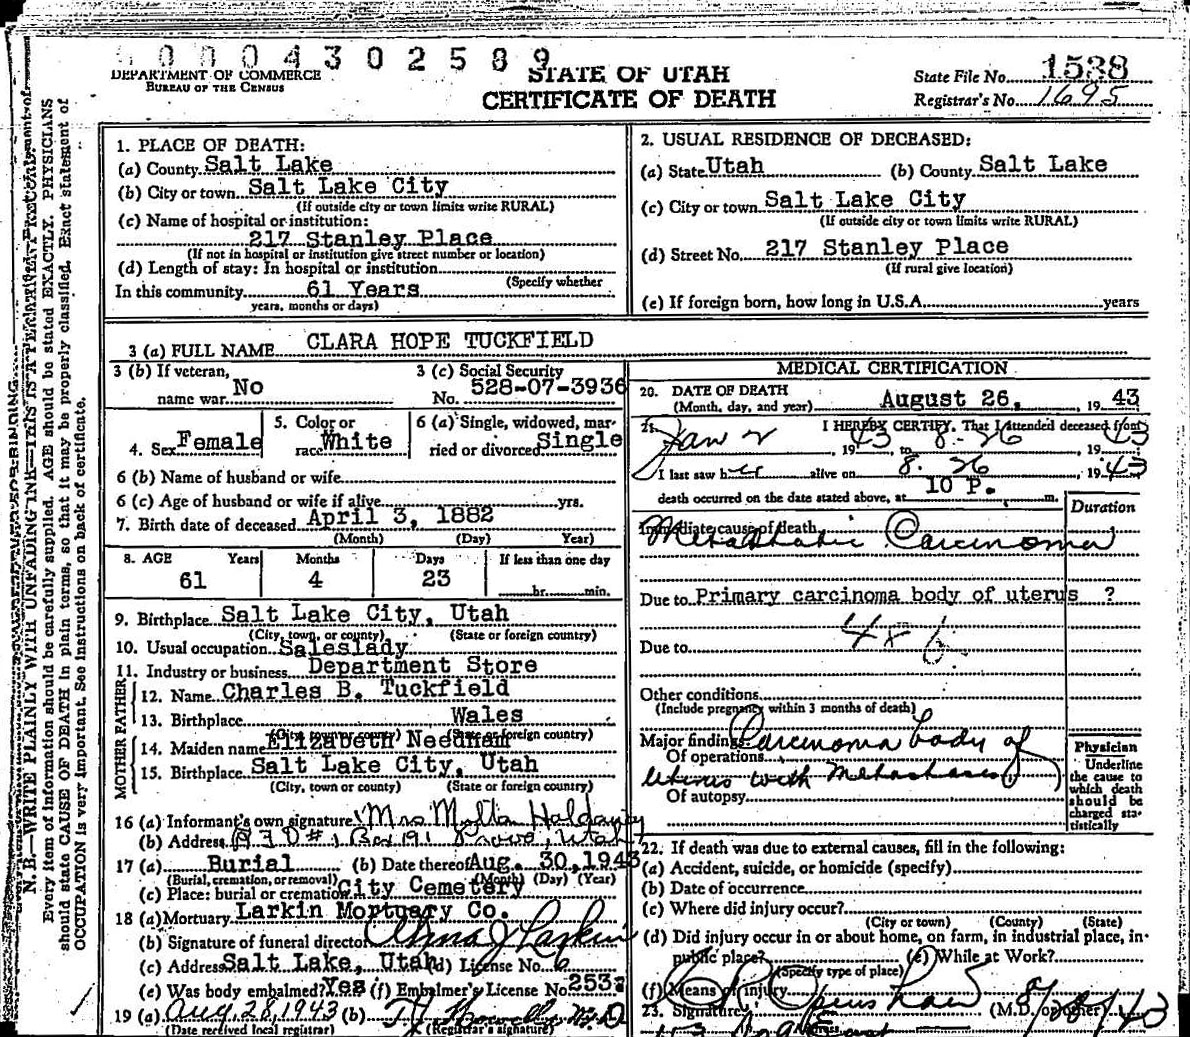 0004302589
DEPARTMENT OF COMMERCE
BUREAU OF THE CENSUS
STATE OF UTAH
CERTIFICATE OF DEATH
State File No. 1538
Registrar's No. 1695
N. B.—WRITE PLAINLY WITH UNFADING INK—THIS IS A PERMANENT
Every item of information should be carefully supplied. AGE should be stated EXACTLY. PHYSICIANS
should state CAUSE OF DEATH in plain terms, so that it may be properly classified. Exact statement of
OCCUPATION is very important. See instructions on back of certificate.
1. PLACE OF DEATH:
(a) County Salt Lake
(b) City or town Salt Lake City
(If outside city or town limits write RURAL)
(c) Name of hospital or institution:
217 Stanley Place
(If not in hospital or institution give street number or location)
(d) Length of stay: In hospital or institution
(Specify whether
In this community 61 Years
years, months or days)
2. USUAL RESIDENCE OF DECEASED:
(a) State Utah (b) County Salt Lake
(c) City or town Salt Lake City
(If outside city or town limits write RURAL)
(d) Street No. 217 Stanley Place
(If rural give location)
(e) If foreign born, how long in U.S.A. years
3 (a) FULL NAME CLARA HOPE TUCKFIELD
3 (b) If veteran, name war No
3 (c) Social Security No. 528-07-3936
4. Sex Female
5. Color or race White
6 (a) Single, widowed, married or divorced Single
6 (b) Name of husband or wife
6 (c) Age of husband or wife if alive yrs.
7. Birth date of deceased April 3, 1882
(Month) (Day) Year)
8. AGE Years Months Days If less than one day
61 4 23 hr. min.
9. Birthplace Salt Lake City, Utah
(City, town, or county) (State or foreign country)
10. Usual occupation Saleslady
11. Industry or business Department Store
FATHER
12. Name Charles B. Tuckfield
13. Birthplace Wales
(City, town or county) (State or foreign country)
MOTHER
14. Maiden name Elizabeth Needham
15. Birthplace Salt Lake City, Utah
(City, town or county) (State or foreign country)
16 (a) Informant's own signature Mrs
(b) Address R F D #1 Box 191 Provo, Utah
17 (a) Burial (b) Date thereof Aug. 30, 1943
(Burial, cremation, or removal) (Month) (Day) (Year)
(c) Place: burial or cremation City Cemetery
18 (a) Mortuary Larkin Mortuary Co.
(b) Signature of funeral director Alma J Larkin
(c) Address Salt Lake, Utah (d) License No. 6
(e) Was body embalmed? Yes (f) Embalmer's License No. 253
19 (a) Aug. 28, 1943 (b)
(Date received local registrar) (Registrar's signature)
MEDICAL CERTIFICATION
20. DATE OF DEATH
(Month, day, and year) August 26, 1943
21. I HEREBY CERTIFY, That I attended deceased from
Jan 2, 1943 to 8-26, 1943
I last saw her alive on 8.26 1943
death occurred on the date stated above, at 10 P. m.
Duration
Immediate cause of death
Metastatic Carcinoma
Due to Primary carcinoma body of uterus ?
Due to 48 b
Other conditions
(Include pregnancy within 3 months of death)
Major findings: Carcinoma body of
Of operations
uterus with Metastases
Of autopsy
Physician
Underline
the cause to
which death
should be
charged sta-
tistically
22. If death was due to external causes, fill in the following:
(a) Accident, suicide, or homicide (specify)
(b) Date of occurrence
(c) Where did injury occur?
(City or town) (County) (State)
(d) Did injury occur in or about home, on farm, in industrial place, in-
public place? (e) While at Work?
(Specify type of place)
(f) Means of injury
23. Signature (M.D. or other) 8/28/43